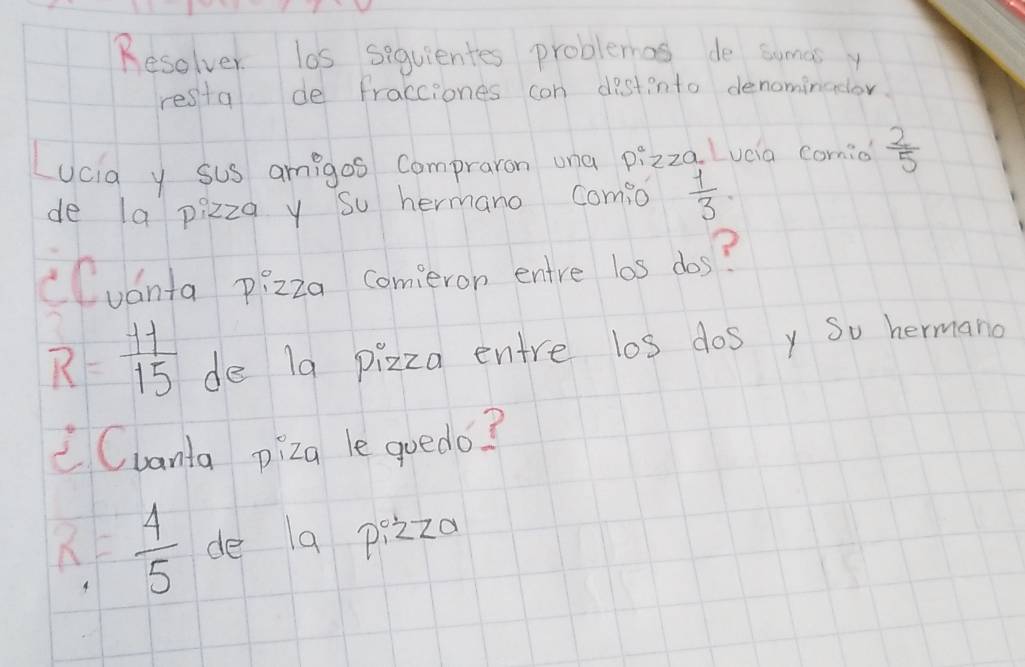 Resolver los siguientes problemas de sumas y
resta de fracciones con distinto denominador.
Lucia y sus amigos compraron una pizza. Lucia comió 2/5
de la pizza y su hermano comió 1/3.
¿Cuánta pizza comieron entre los dos?
R = 11/15 de la pizza entre los dos y su hermano
¿Cuanta piza le quedó?
R = 4/5 de la pizza